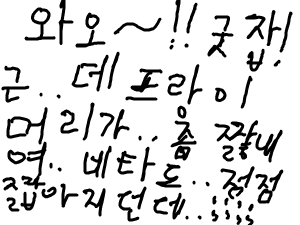 와오~!! 굿잡!
근..데 프라이
머리가.. 좀 짧내
여.. 네타도.. 점점
짧아지던데..;;;;